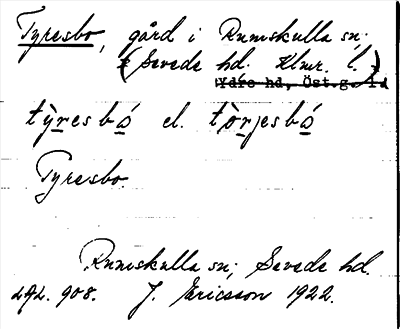 Tyresbo, gård i Rumskulla sn;
(Sevede hd. Klmr. l.)
Ydre hd, Öst.g. l.
tỳresbó el. tòrjesbó
Tyresbo.
Rumskulla sn; Sevede hd.
J. Ericsson 1922.